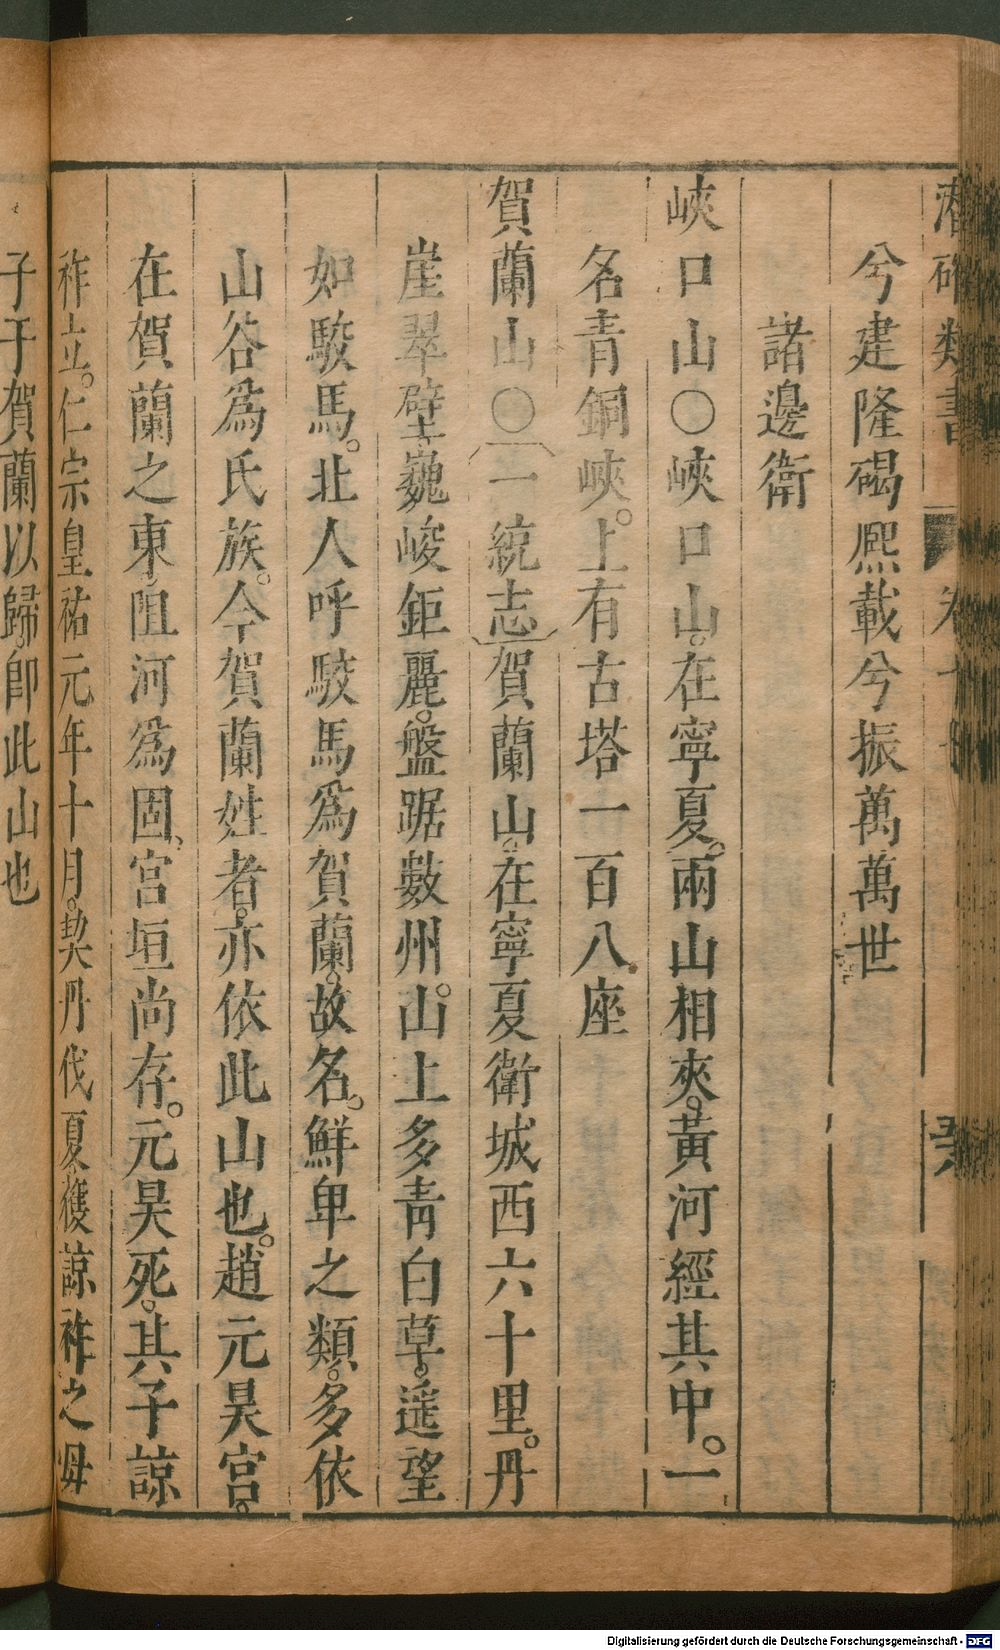 潛確類書 卷十
兮建隆碣熈載兮振萬萬世
諸邊衛
峽口山〇峽口山。在寧夏。兩山相夾。黃河經其中。一
名青銅峽。上有古塔一百八座
賀蘭山〇一統志賀蘭山。在寧夏衛城西六十里。丹
崖翠壁。巍峻鉅麗。盤踞數州。山上多青白草。遥望
如駮馬。北人呼駮馬爲賀蘭。故名。鮮卑之類。多依
山谷爲氏族。今賀蘭姓者。亦依此山也。趙元昊宮。
在賀蘭之東、阻河爲固、宮垣尚存。元昊死。其子諒
祚立。仁宗皇祐元年十月。契丹伐夏。獲諒祚之毋
子于賀蘭以歸。卽此山也
Digitalisierung gefördert durch die Deutsche Forschungsgemeinschaft - DFG